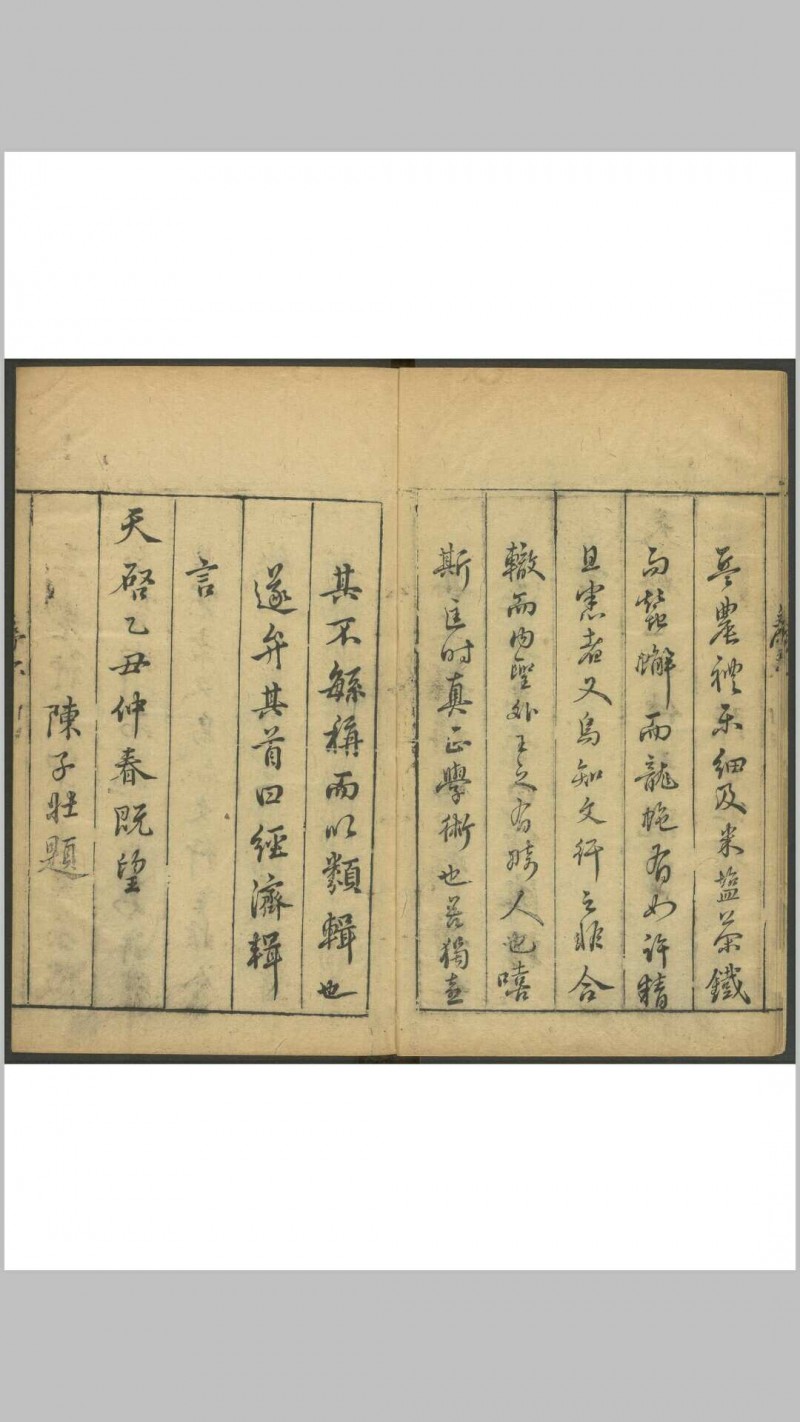 兵農禮樂細及米鹽茶鐵
而蟹懈而龍蛇有如許精
且悉者又烏知文行之非合
轍而內聖外王之有殊人也嘻
斯匡時真正學術也若獨喜
其不繇稱而以類輯也
遂弁其首曰經濟輯
言
天啓乙丑仲春既望
陳子壯題